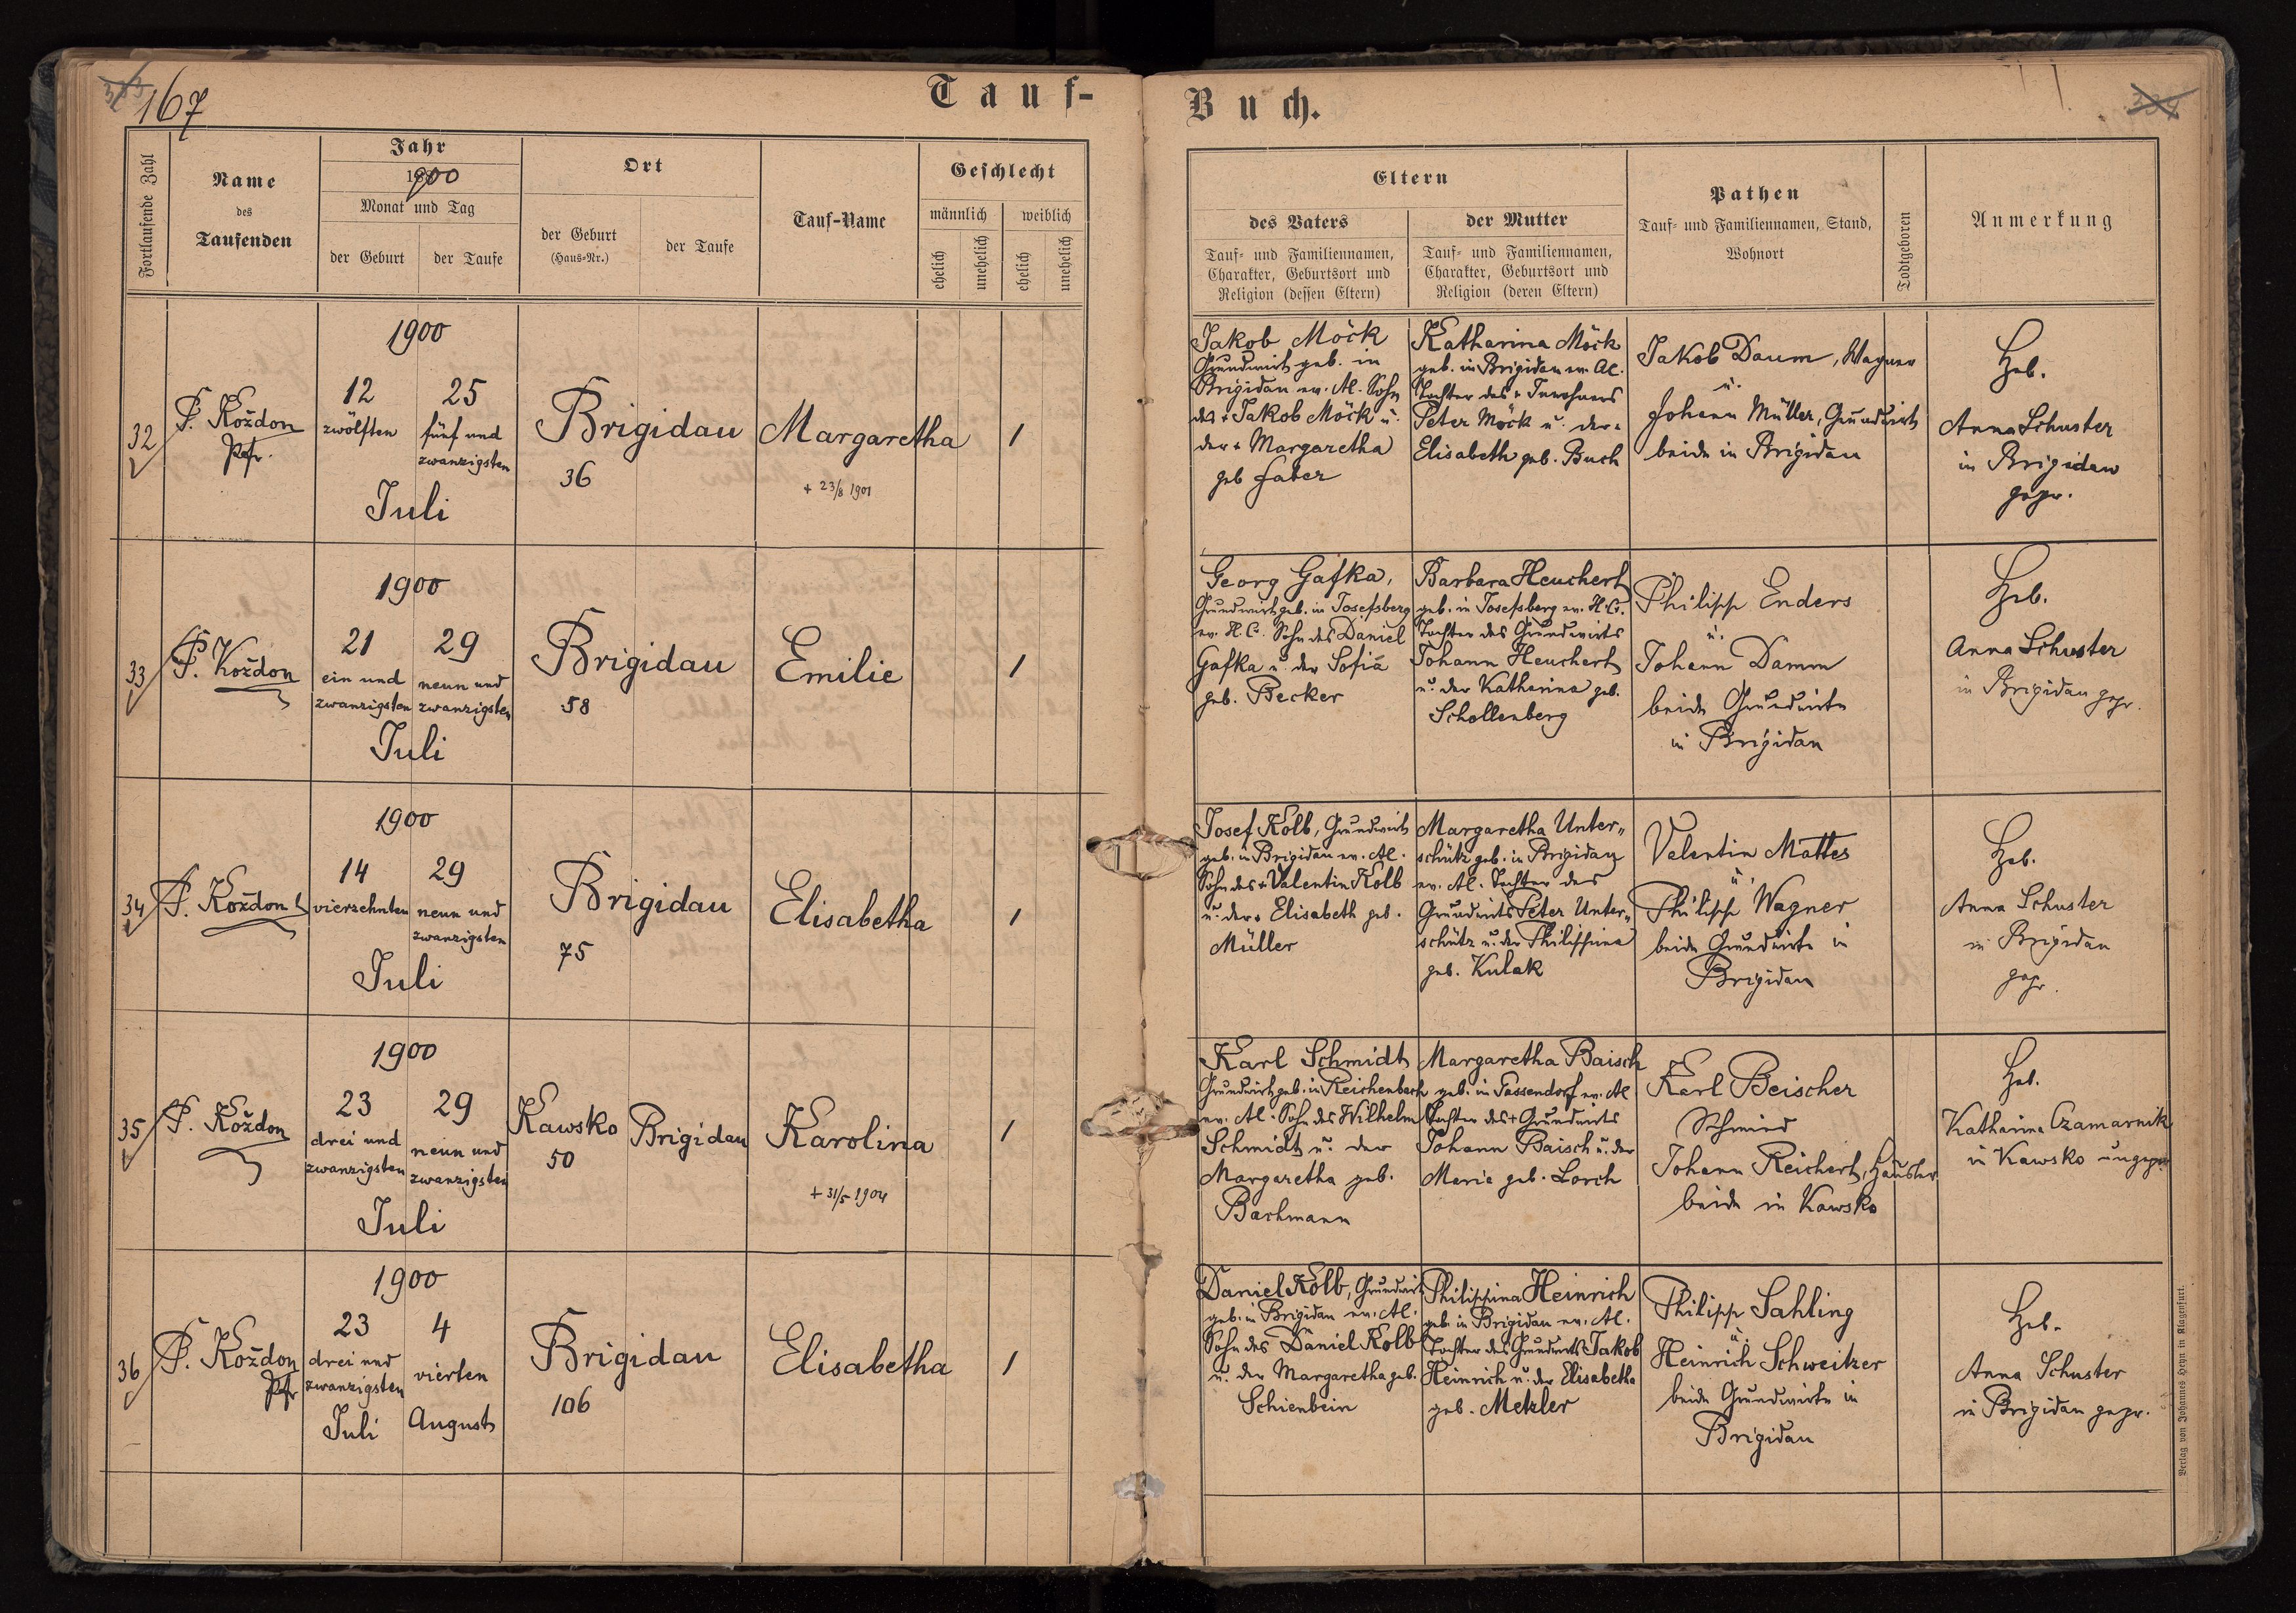 167
Tauf-
Fortlaufende Zahl
Name
des
Taufenden
Jahr
1900
Monat und Tag
der Geburt
der Taufe
Ort
der Geburt
(Haus-Nr.)
der Taufe
Tauf-Name
Geschlecht
männlich
weiblich
ehelich
unehelich
ehelich
unehelich
32
P. Koždon
Pfr.
1900
12
zwölften
25
fünf und
zwanzigsten
Juli
Brigidau
36
Margaretha
+ 23/8 1901
1
33
P. Koždon
1900
21
ein und
zwanzigsten
29
neun und
zwanzigsten
Juli
Brigidau
58
Emilie
1
34
P. Koždon
1900
14
vierzehnten
29
neun und
zwanzigsten
Juli
Brigidau
75
Elisabetha
1
35
P. Koždon
1900
23
drei und
zwanzigsten
29
neun und
zwanzigsten
Juli
Kawsko
50
Brigidau
Karolina
+ 31/5 1904
1
36
P. Koždon
Pfr
1900
23
drei und
zwanzigsten
Juli
4
vierten
August
Brigidau
106
Elisabetha
1
Buch.
Eltern
des Vaters
Tauf- und Familiennamen,
Charakter, Geburtsort und
Religion (dessen Eltern)
der Mutter
Tauf- und Familiennamen,
Charakter, Geburtsort und
Religion (deren Eltern)
Pathen
Tauf- und Familiennamen, Stand,
Wohnort
Todtgeboren
Anmerkung
Jakob Möck
Grundwirt geb. in
Brigidau ev. AC. Sohn
des + Jakob Möck u.
der + Margaretha
geb Faber
Katharina Möck
geb. in Brigidau ev. AC.
Tochter des + Inwohners
Peter Möck u. der +
Elisabeth geb. Buch
Jakob Daum, Wagner
u.
Johann Müller, Grundwirt
beide in Brigidau
Heb.
Anna Schuster
in Brigidau
gepr.
Georg Gafka,
Grundwirt geb. in Josefsberg
ev. H.C. Sohn des Daniel
Gafka u. der Sofia
geb. Becker
Barbara Heuchert
geb. in Josefsberg ev. H.C.
Tochter des Grundwirts
Johann Heuchert
u. der Katharina geb.
Schollenberg
Philipp Enders
u.
Johann Damm
beide Grundwirte
in Brigidau
Heb.
Anna Schuster
in Brigidau gepr.
Josef Kolb, Grundwirt
geb. in Brigidau ev. AC.
Sohn des + Valentin Kolb
u. der + Elisabeth geb.
Müller
Margaretha Unter„
schütz geb. in Brigidau
ev. AC. Tochter des
Grundwirts Peter Unter„
schütz u. der Philippina
geb. Kulak
Valentin Mattes
u.
Philipp Wagner
beide Grundwirte in
Brigidau
Heb.
Anna Schuster
in Brigidau
gepr.
Karl Schmidt
Grundwirt geb. in Reichenbach
ev. AC. Sohn des Wilhelm
Schmidt u. der
Margaretha geb.
Bachmann
Margaretha Baisch
geb. in Gassendorf ev. AC
Tochter des + Grundwirts
Johann Baisch u. der
Maria geb. Lorch
Karl Beischer
Schmied
Johann Reichert, Häusler
beide in Kawsko
Heb.
Katharina Czamarnik
in Kawsko ungepr.
Daniel Kolb, Grundwirt
geb. in Brigidau ev. AC.
Sohn des Daniel Kolb
u. der Margaretha geb.
Schienbein
Philippina Heinrich
geb. in Brigidau ev. AC.
Tochter des Grundwirts Jakob
Heinrich u. der Elisabetha
geb. Metzler
Philipp Sahling
u.
Heinrich Schweitzer
beide Grundwirte in
Brigidau
Heb.
Anna Schuster
in Brigidau gepr.
Verlag von Johannes Heyn in Klagenfurt.